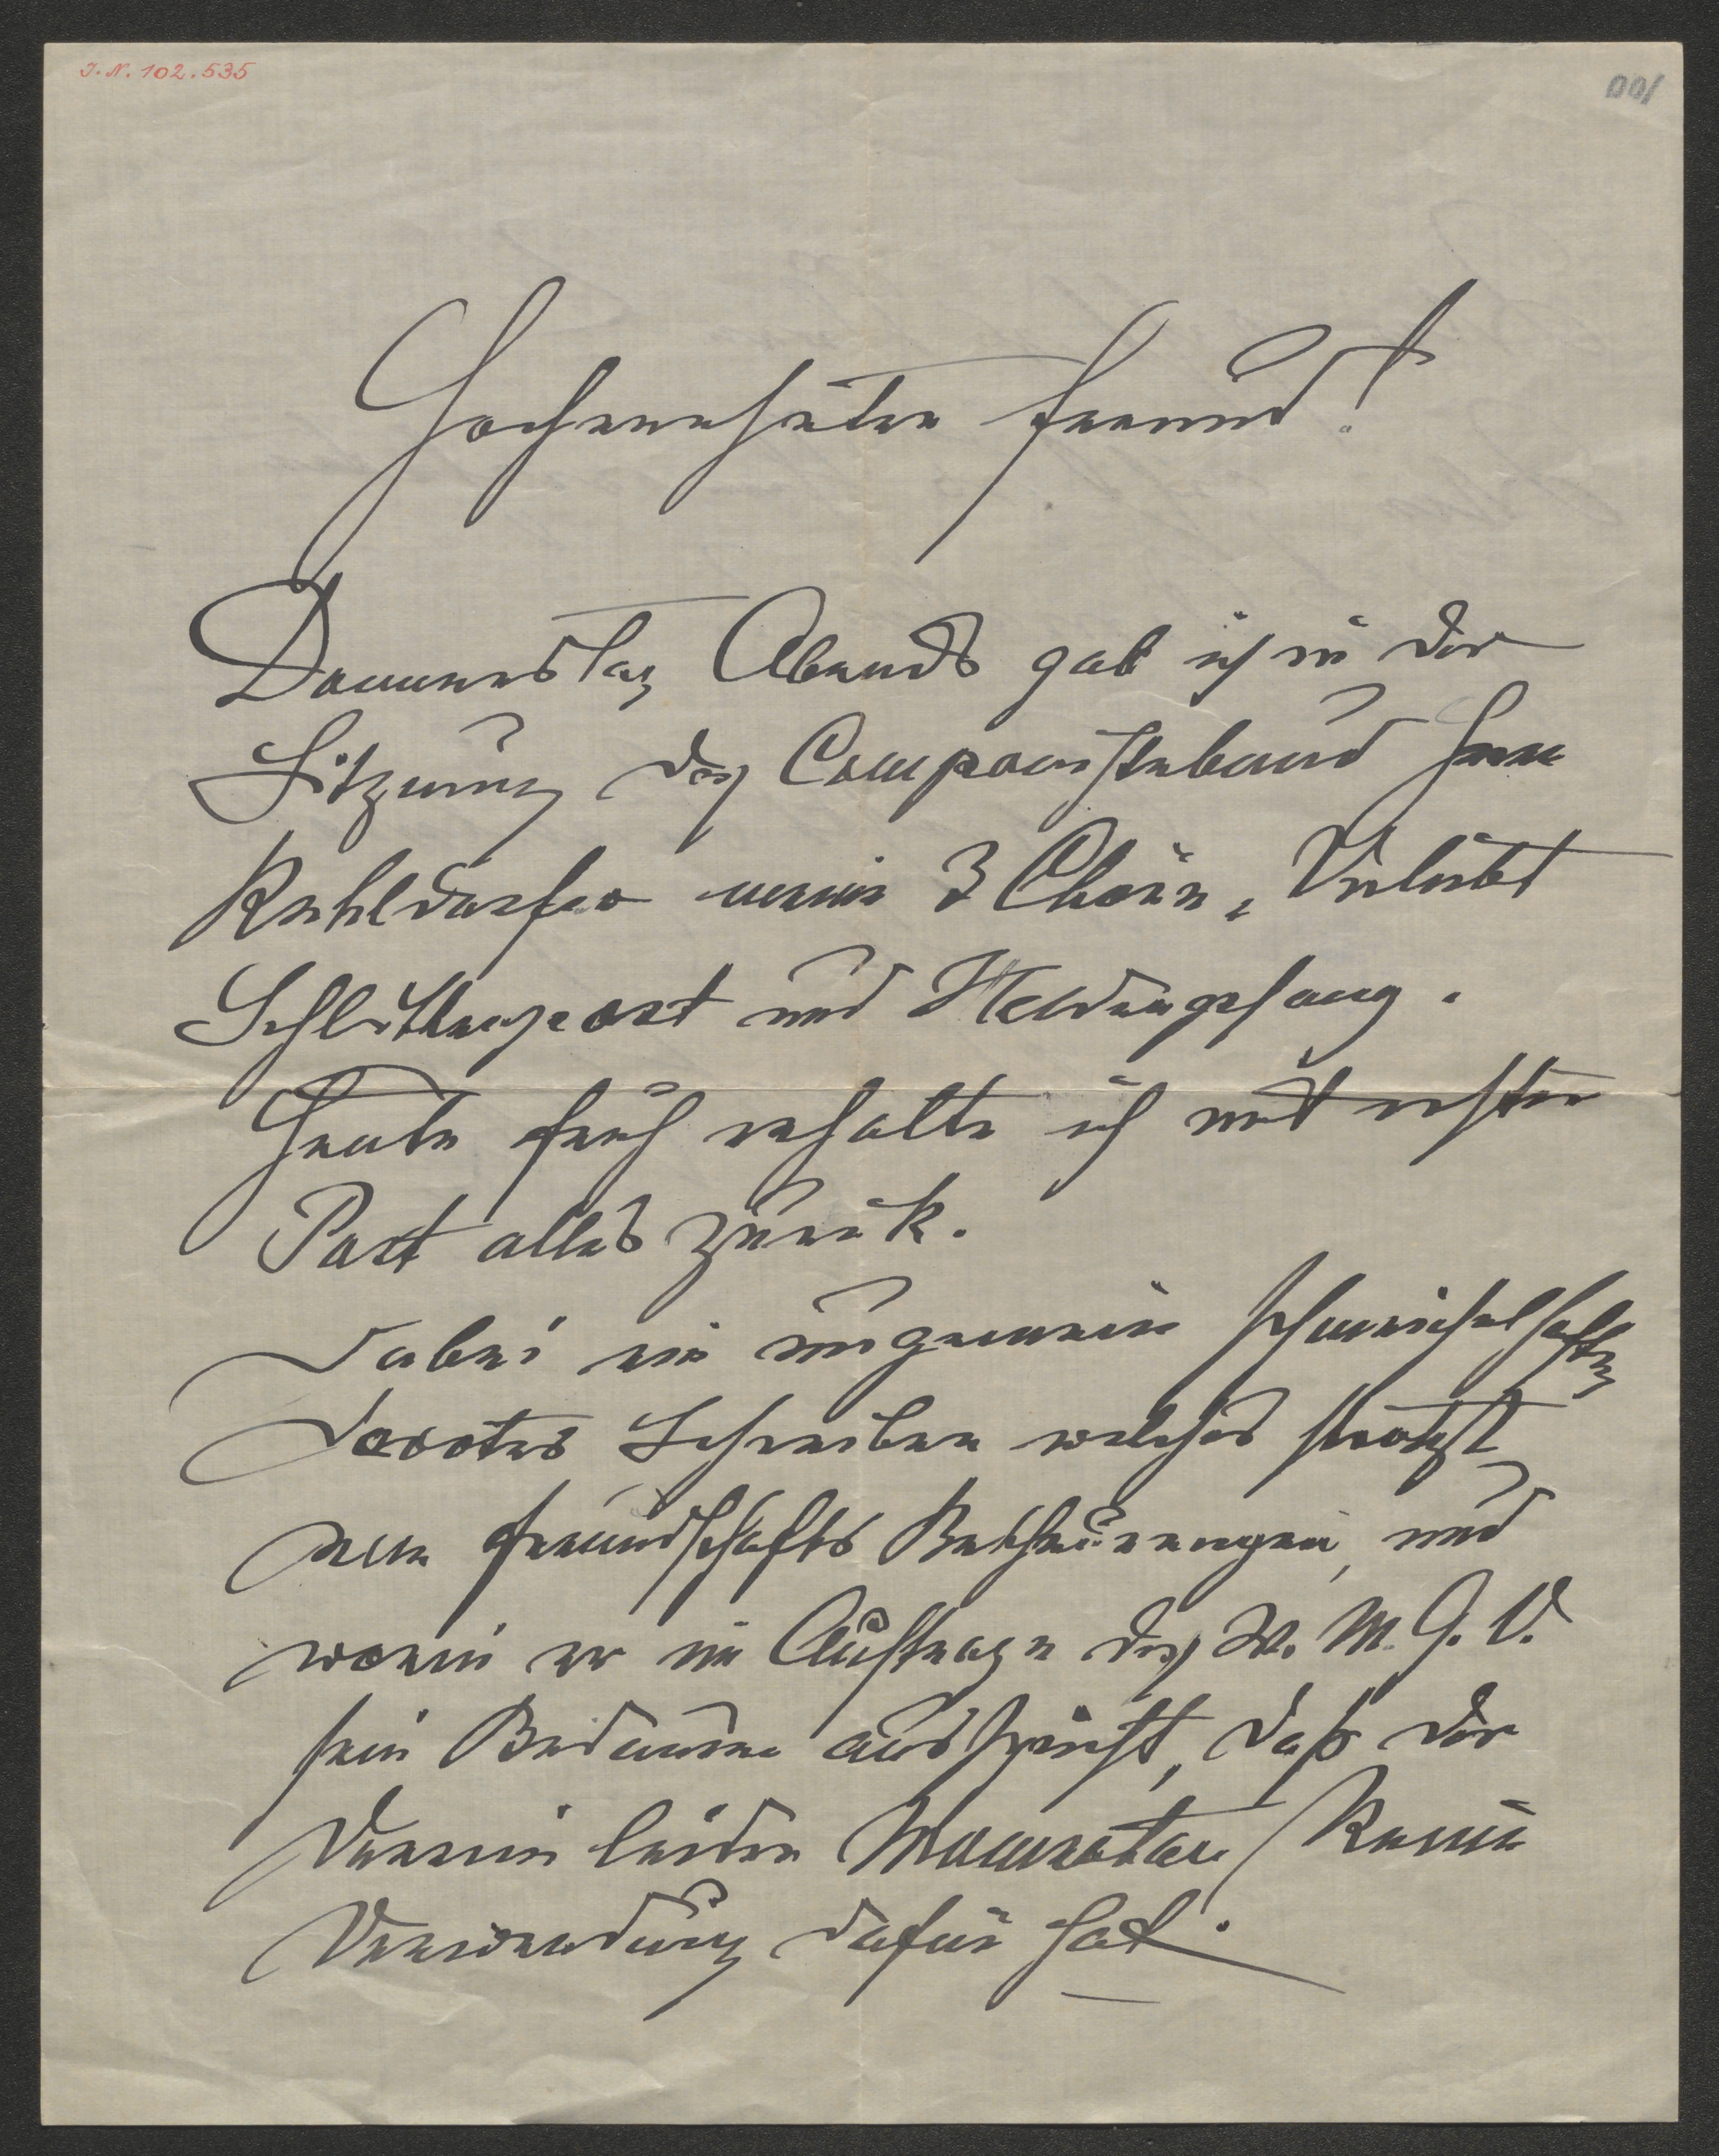 J.N. 102.535
Hochverehrter Freund!
Donnerstag Abends gab ich in der
Sitzung des Componistenbund Herrn
Kehldorfer meine 3 Chöre, Verliebt
Schlittenpost und Heldengesang.
Heute früh erhalte ich mit erster
Post alles zurück.
Dabei ein ungemein schmeichelhaftes
Schreiben welches strotzt
von Freundschafts Betheuerungen, und
worin er im Auftrage des W. M. G. V.
sein Bedauern ausspricht, daß der
Verein leider Momentan / keine
Verwendung dafür hat.